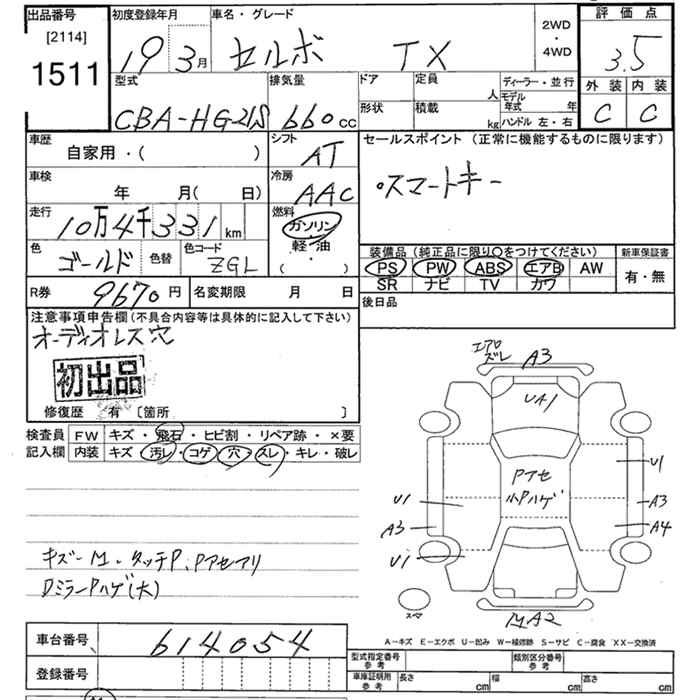 出品番号
[2114]
1511
初度登録年月
19 3月
車名・グレード
セルボ TX
2WD
・
4WD
評価点
3.5
外装 内装
C C
型式
CBA-HG21S
排気量
660cc
ドア
形状
定員 人
積載 kg
ディーラー・並行
モデル年式 年
ハンドル 左・右
車歴
自家用・( )
シフト
AT
車検
年 月( 日)
冷房
AAC
走行
10万4千331km
燃料
ガソリン
軽・油
( )
色
ゴールド
色替
色コード
ZGL
セールスポイント (正常に機能するものに限ります)
・スマートキー
装備品(純正品に限り〇をつけてください)
PS PW ABS エアB AW
SR ナビ TV カワ
新車保証書
有・無
R券
9670円
名変期限 月 日
後日品
注意事項申告欄(不具合内容等は具体的に記入して下さい)
オーディオレス穴
初出品
修復歴 有 [箇所 ]
検査員記入欄
FW キズ・飛石・ヒビ割・リペア跡・×要
内装 キズ・汚レ・コゲ・穴・スレ・キレ・破レ
キズ-M.タッチP.Pアセアリ
DミラーPハゲ(大)
エアロ
ズレ
A3
UA1
Pアセ
小Pハゲ
U1
A3
U1
U1
A3
A4
MA2
スペマ
A-キズ E-エクボ U-凹み W-補修跡 S-サビ C-腐食 XX-交換済
車台番号
614054
登録番号
型式指定番号
参考
類別区分番号
参考
車庫証明用
参考
長さ cm
幅 cm
高さ cm